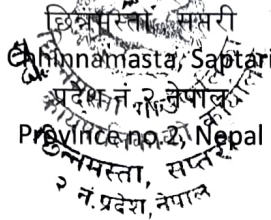 छिन्नमस्ता, सप्तरी
Chhinnamasta, Saptari
प्रदेश नं. २, नेपाल
Province no.2, Nepal
छिन्नमस्ता, सप्तरी
२ नं. प्रदेश, नेपाल